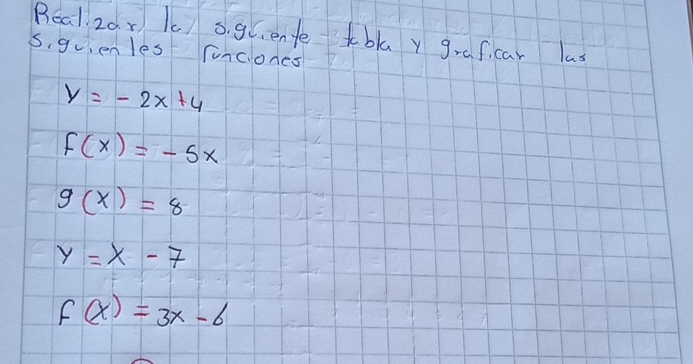 Realizar la siguiente tabla y graficar las
siguientes funciones
y = - 2x + 4
f(x) = - 5x
g(x) = 8
y = x - 7
f(x) = 3x - 6